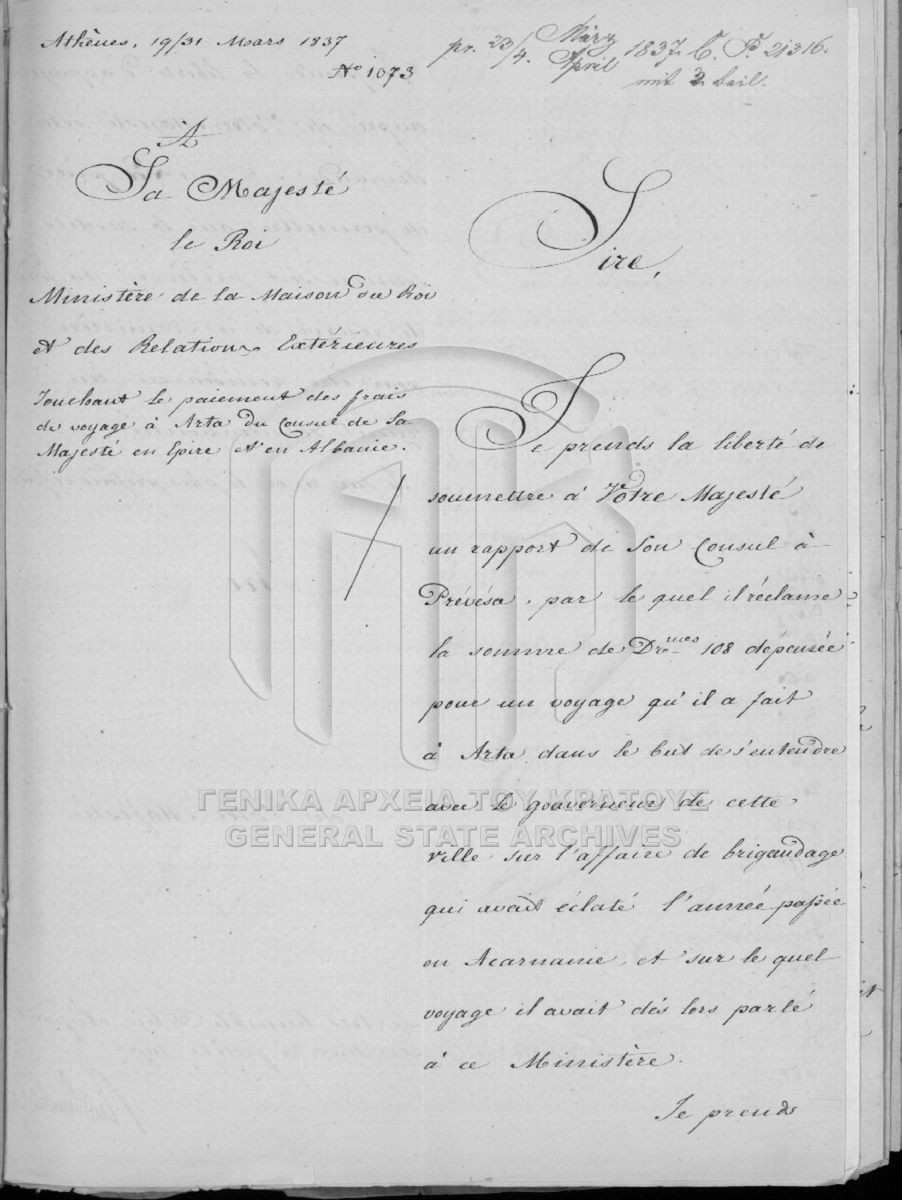 Athènes, 19/31 Mars 1837
No 1073
pr. 23/4. März/April 1837. C. P. 21316.
mit 2 beil.
A
Sa Majesté
le Roi
Ministère de la Maison du Roi
et des Relations Extérieures
Touchant le paiement des frais
de voyage à Arta du Consul de Sa
Majesté en Epire et en Albanie.
Sire,
Je prends la liberté de
soumettre à Votre Majesté
un rapport de Son Consul à
Prévésa, par le quel il réclame
la somme de Drmes 108 dépensée
pour un voyage qu'il a fait
à Arta dans le but de s'entendre
avec le gouverneur de cette
ville sur l'affaire de brigandage
qui avait éclaté l'année passée
en Acarnanie, et sur le quel
voyage il avait dés lors parlé
à ce Ministère.
Je prends
ΓΕΝΙΚΑ ΑΡΧΕΙΑ ΤΟΥ ΚΡΑΤΟΥΣ
GENERAL STATE ARCHIVES